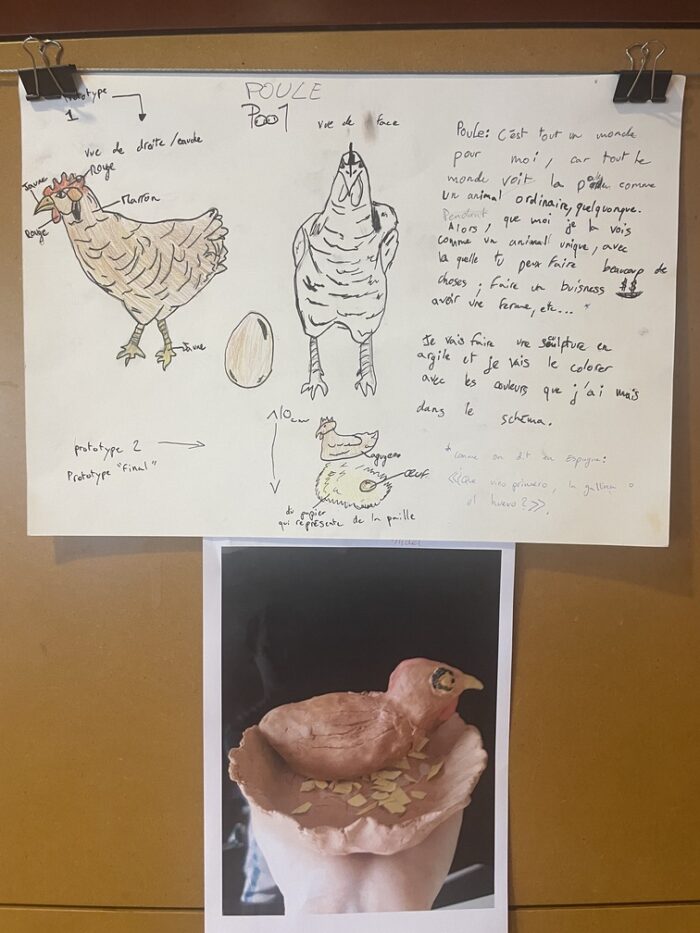 Prototype
1
POULE
Poo1
vue de face
vue de droite/gauche
Rouge
Jaune
Rouge
Marron
Jaune
Poule: C'est tout un monde
pour moi, car tout le
monde voit la comme
un animal ordinaire, quelquonque.
Pendant
Alors, que moi je la vois
comme un animal unique, avec
la quelle tu peux faire beaucoup de
choses: Faire un buisness $$
avoir une ferme, etc... *
Je vais faire une sculpture en
argile et je vais le colorer
avec les couleurs que j'ai mais
dans le schéma.
prototype 2
Prototype "Final"
10cm
oeuf
du papier
qui représente de la paille
*comme on dit en Espagne:
<<¿Que vino primero, la gallina o
el huevo?>>.